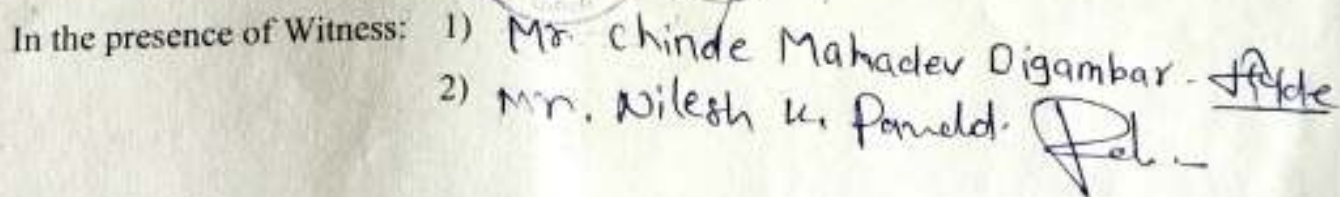 In the presence of Witness: 1) Mr. Chinde Mahadev Digambar -
2) Mr. Nilesh K.